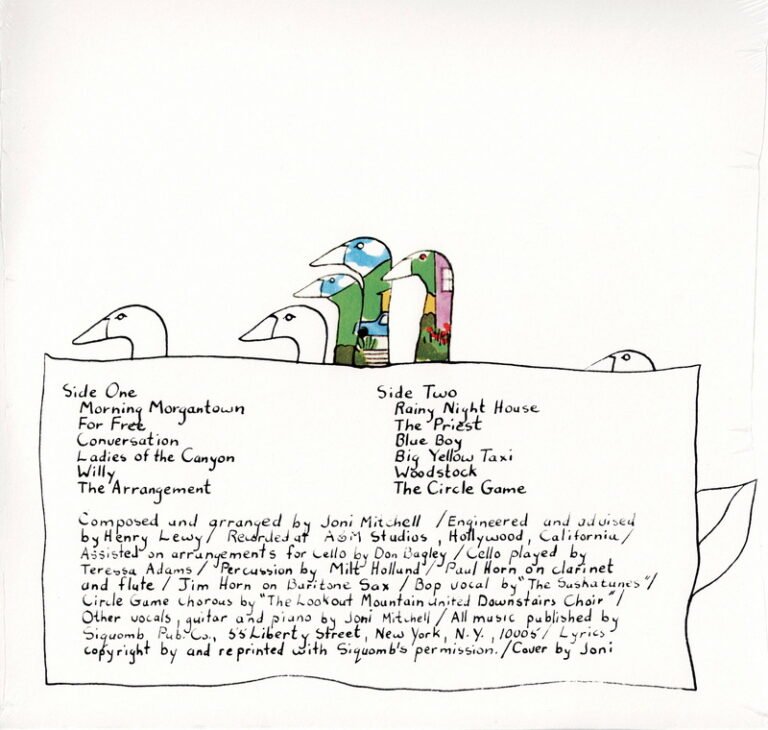 Side One
Morning Morgantown
For Free
Conversation
Ladies of the Canyon
Willy
The Arrangement
Side Two
Rainy Night House
The Priest
Blue Boy
Big Yellow Taxi
Woodstock
The Circle Game
Composed and arranged by Joni Mitchell / Engineered and advised
by Henry Lewy / Recorded at A&M Studios, Hollywood, California /
Assisted on arrangements for Cello by Don Bagley / Cello played by
Teressa Adams / Percussion by Milt Holland / Paul Horn on clarinet
and flute / Jim Horn on Baritone Sax / Bop vocal by "The Saskatunes" /
Circle Game Chorous by "The Lookout Mountain United Downstairs Choir" /
Other vocals, guitar and piano by Joni Mitchell / All music published by
Siquomb Pub. Co., 55 Liberty Street, New York, N.Y., 10005 / Lyrics
copyright by and reprinted with Siquomb's permission. / Cover by Joni